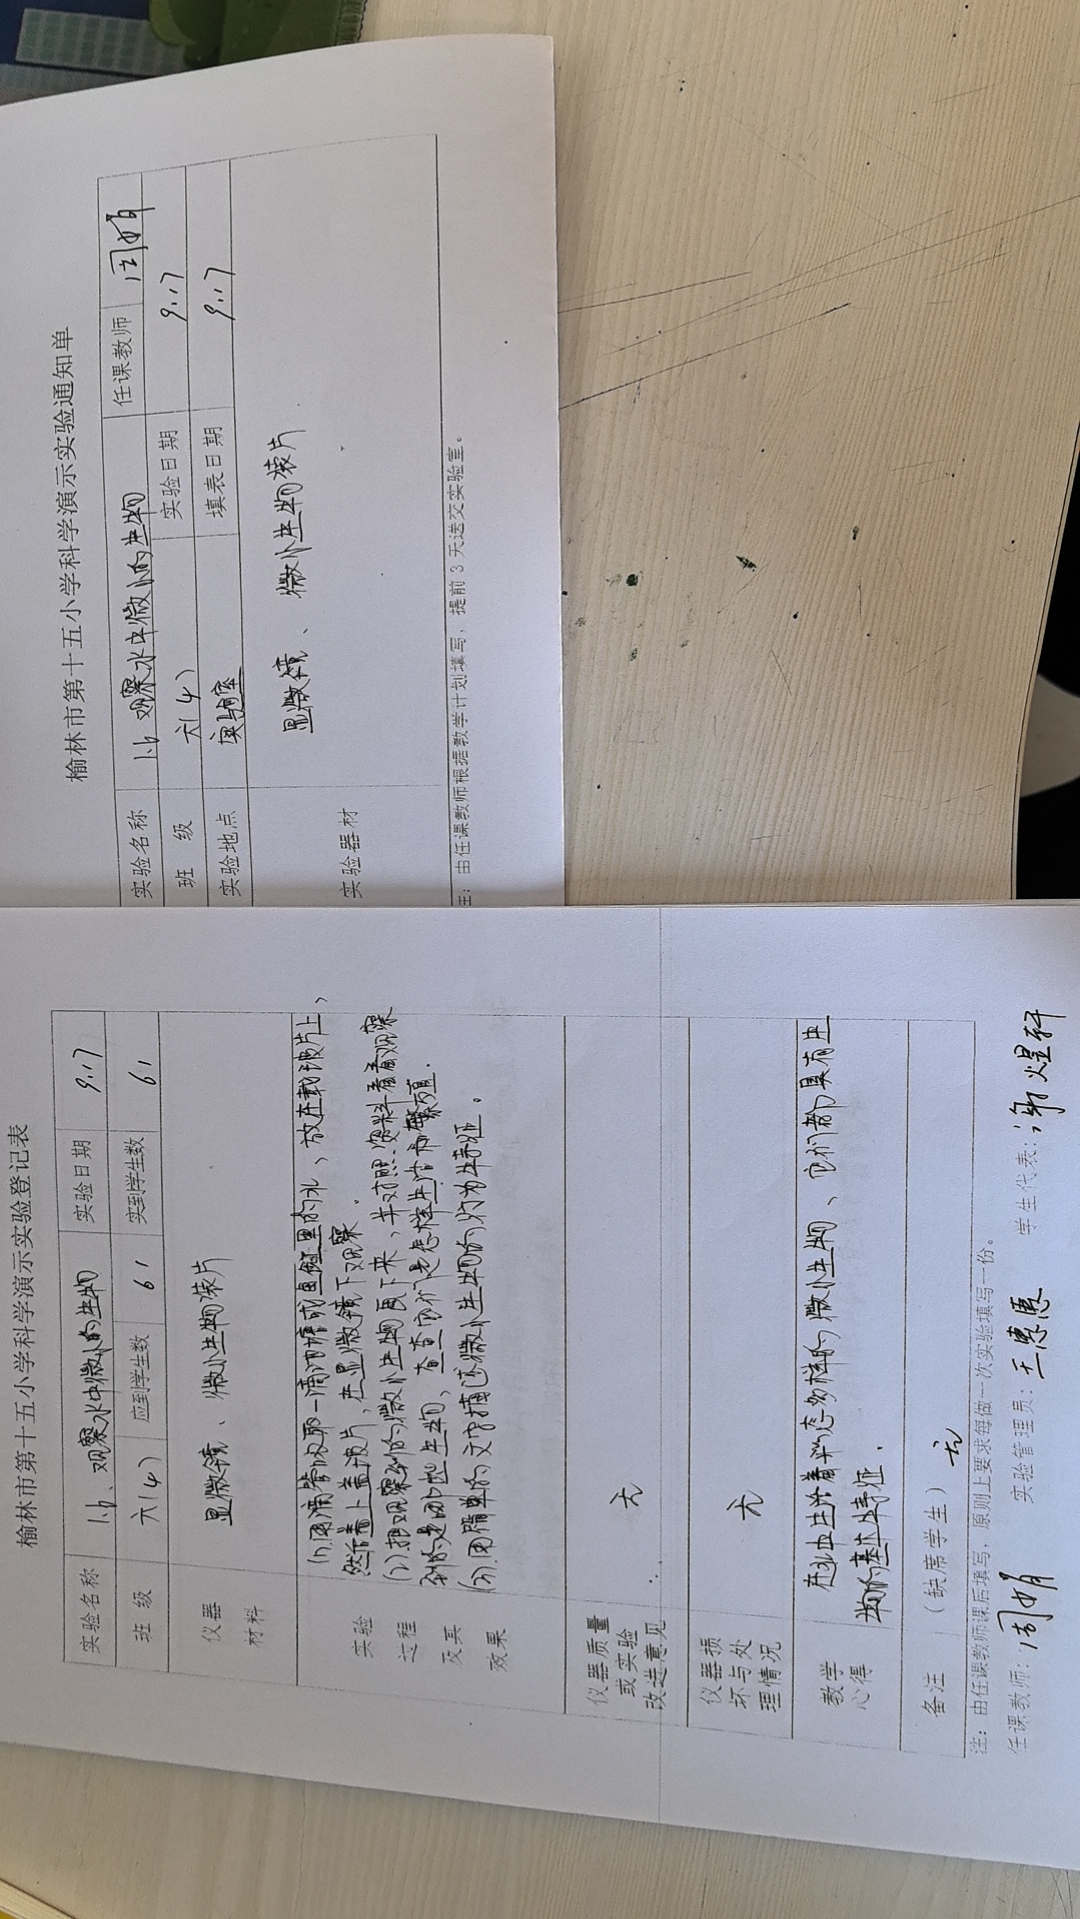 榆林市第十五小学科学演示实验通知单
实验名称 1.6 观察水中微小的生物 任课教师 周娟
班 级 六(4) 实验日期 9.17
实验地点 实验室 填表日期 9.17
实验器材 显微镜、微小生物装片
注:由任课教师根据教学计划填写,提前3天送交实验室。
榆林市第十五小学科学演示实验登记表
实验名称 1.6、观察水中微小的生物 实验日期 9.17
班 级 六(4) 应到学生数 61 实到学生数 61
仪器
材料
显微镜、微小生物装片
实验
过程
及其
效果
(1)用滴管吸取一滴池塘或鱼缸里的水,放在载玻片上,
然后盖上盖玻片,在显微镜下观察.
(2)把观察到的微小生物画下来,并对照资料看看观察
到的是哪些生物,查查它们是怎样生活和繁殖.
(3)用简单的文字描述微小生物的行为特征。
仪器质量
或实验
改进意见
无
仪器损
坏与处
理情况
无
教学
心得
在水中生活着形态多样的微小生物、它们都具有生
物的基本特征.
备注 (缺席学生) 无
注:由任课教师课后填写,原则上要求每做一次实验填写一份。
任课教师:周娟 实验管理员:王惠惠 学生代表:煜轩